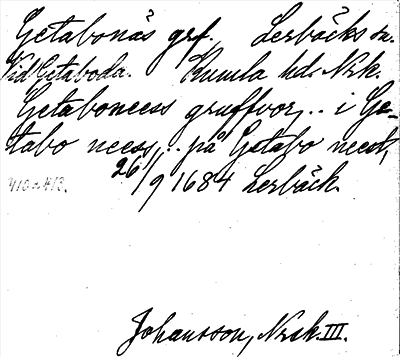 Getabonäs grf. Lerbäcks sn.
Vid Getaboda. Kumla hd. Nrk.
Getaboneess gruffvor,.. i Ge-
tabo neess,.. på Getabo neest,
26/9 1684 Lerbäck.
410 a 43.
Johansson, Nrsk. III.